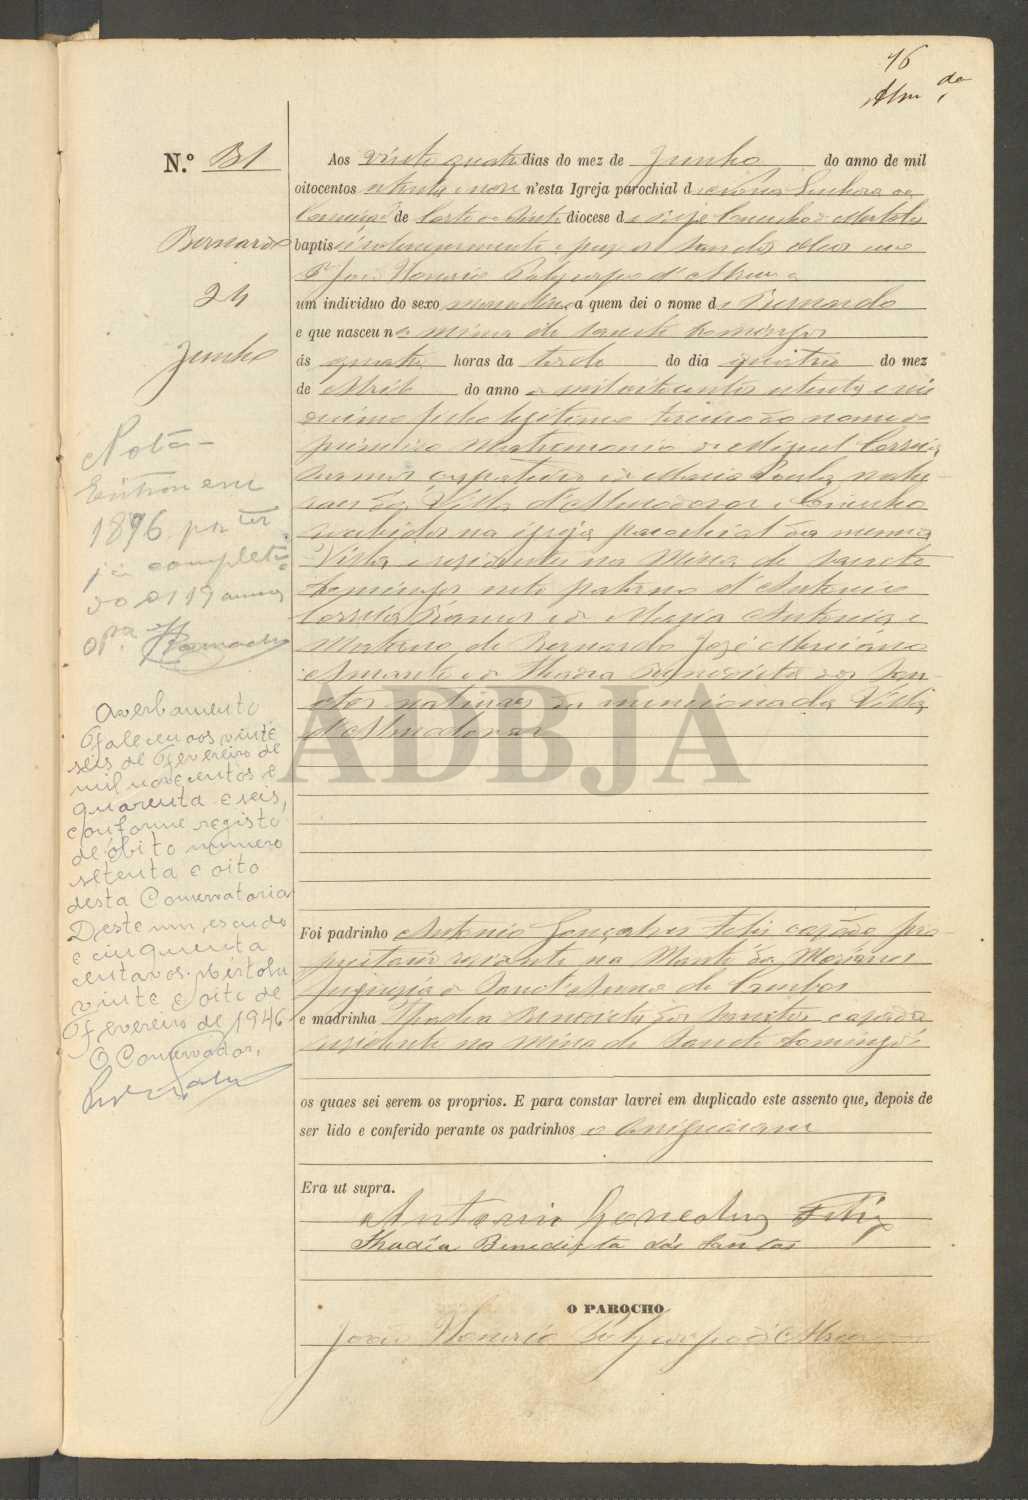 16
N.º 31
Bernardo
24
Junho
Nota
Entrou em
1896 por ter
já completa
do os 19 annos
Averbamento
Faleceu aos vinte
seis de Fevereiro de
mil novecentos e
quarenta e seis,
conforme registo
de óbito numero
setenta e oito
desta Conservatoria
Deste um escudo
e cinquenta
centavos. Mertola
vinte e oito de
Fevereiro de 1946
O Conservador,
Aos vinte quatro dias do mez de Junho do anno de mil
oitocentos setenta e nove n'esta Igreja parochial de Nossa Senhora da
Conceição de Corte do Pinto diocese de Beja Concelho de Mertola
baptisei solemnemente e puz os Sanctos oleos eu o
Pe João Honorio Polycarpo d'
um individuo do sexo masculino a quem dei o nome de Bernardo
e que nasceu na Mina de Sancto Domingos
ás quatro horas da tarde do dia quatro do mez
de Abril do anno de mil oitocentos setenta e
filho legitimo terceiro do nome do
primeiro Matrimonio de Miguel Correia
Ramos carpinteiro e de Maria Paula natu-
raes da Villa d'Almodovar e Concelho
recebidos na igreja parochial da mesma
Villa e residentes na Mina de Sancto
Domingos neto paterno d'Antonio
Correia Ramos e de Maria Antonia e
Materno de Bernardo José Mariano
e de Thadea Benedicta dos San-
ctos naturaes da mencionada Villa
d'Almodovar
Foi padrinho Antonio Gonçalves Feliz casado pro-
prietario residente no Monte da
freguezia de Sanct'Anna de Cambas
e madrinha Thadea Benedicta dos Sanctos casada
residente na Mina de Sancto Domingos
os quaes sei serem os proprios. E para constar lavrei em duplicado este assento que, depois de
ser lido e conferido perante os padrinhos o assignaram
Era ut supra.
Antonio Goncalves Feliz
Thadéa Benedicta dos Santos
O PAROCHO
João Honorio Polycarpo d'
ADBJA